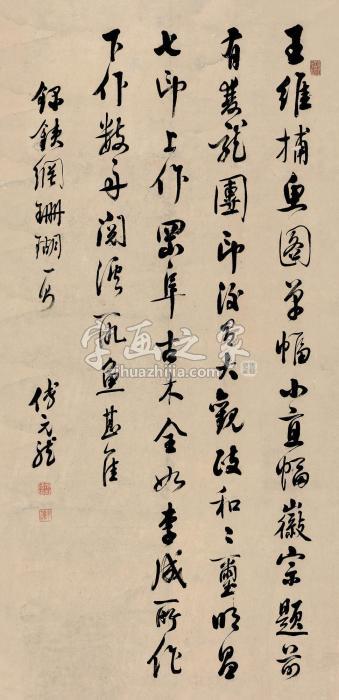 王維捕魚圖單幅小直幅徽宗題前
有雙龍團印後大觀政和二璽明昌
七印上作岡阜古木全如李成所作
下作數舟溪魚甚佳
錄鐵網珊瑚一
傅
字画之家
huazhijia.com